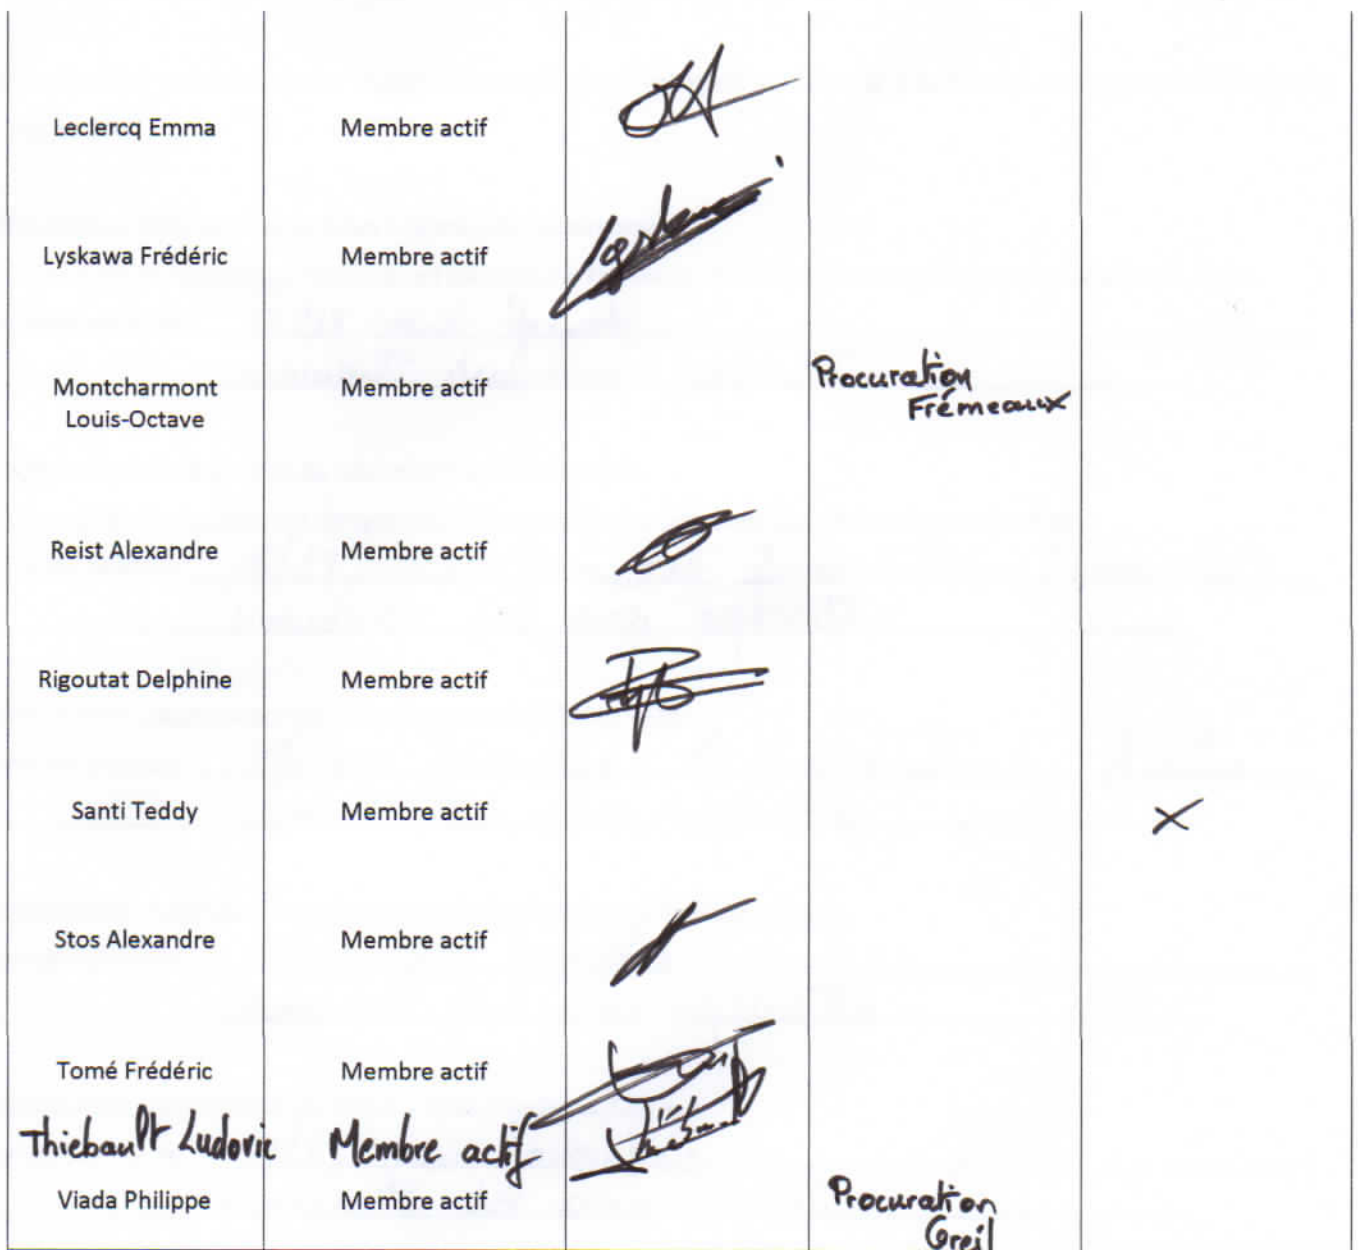 Leclercq Emma Membre actif
Lyskawa Frédéric Membre actif
Montcharmont Membre actif Procuration
Louis-Octave Frémeaux
Reist Alexandre Membre actif
Rigoutat Delphine Membre actif
Santi Teddy Membre actif X
Stos Alexandre Membre actif
Tomé Frédéric Membre actif
Thiebault Ludovic Membre actif
Viada Philippe Membre actif Procuration